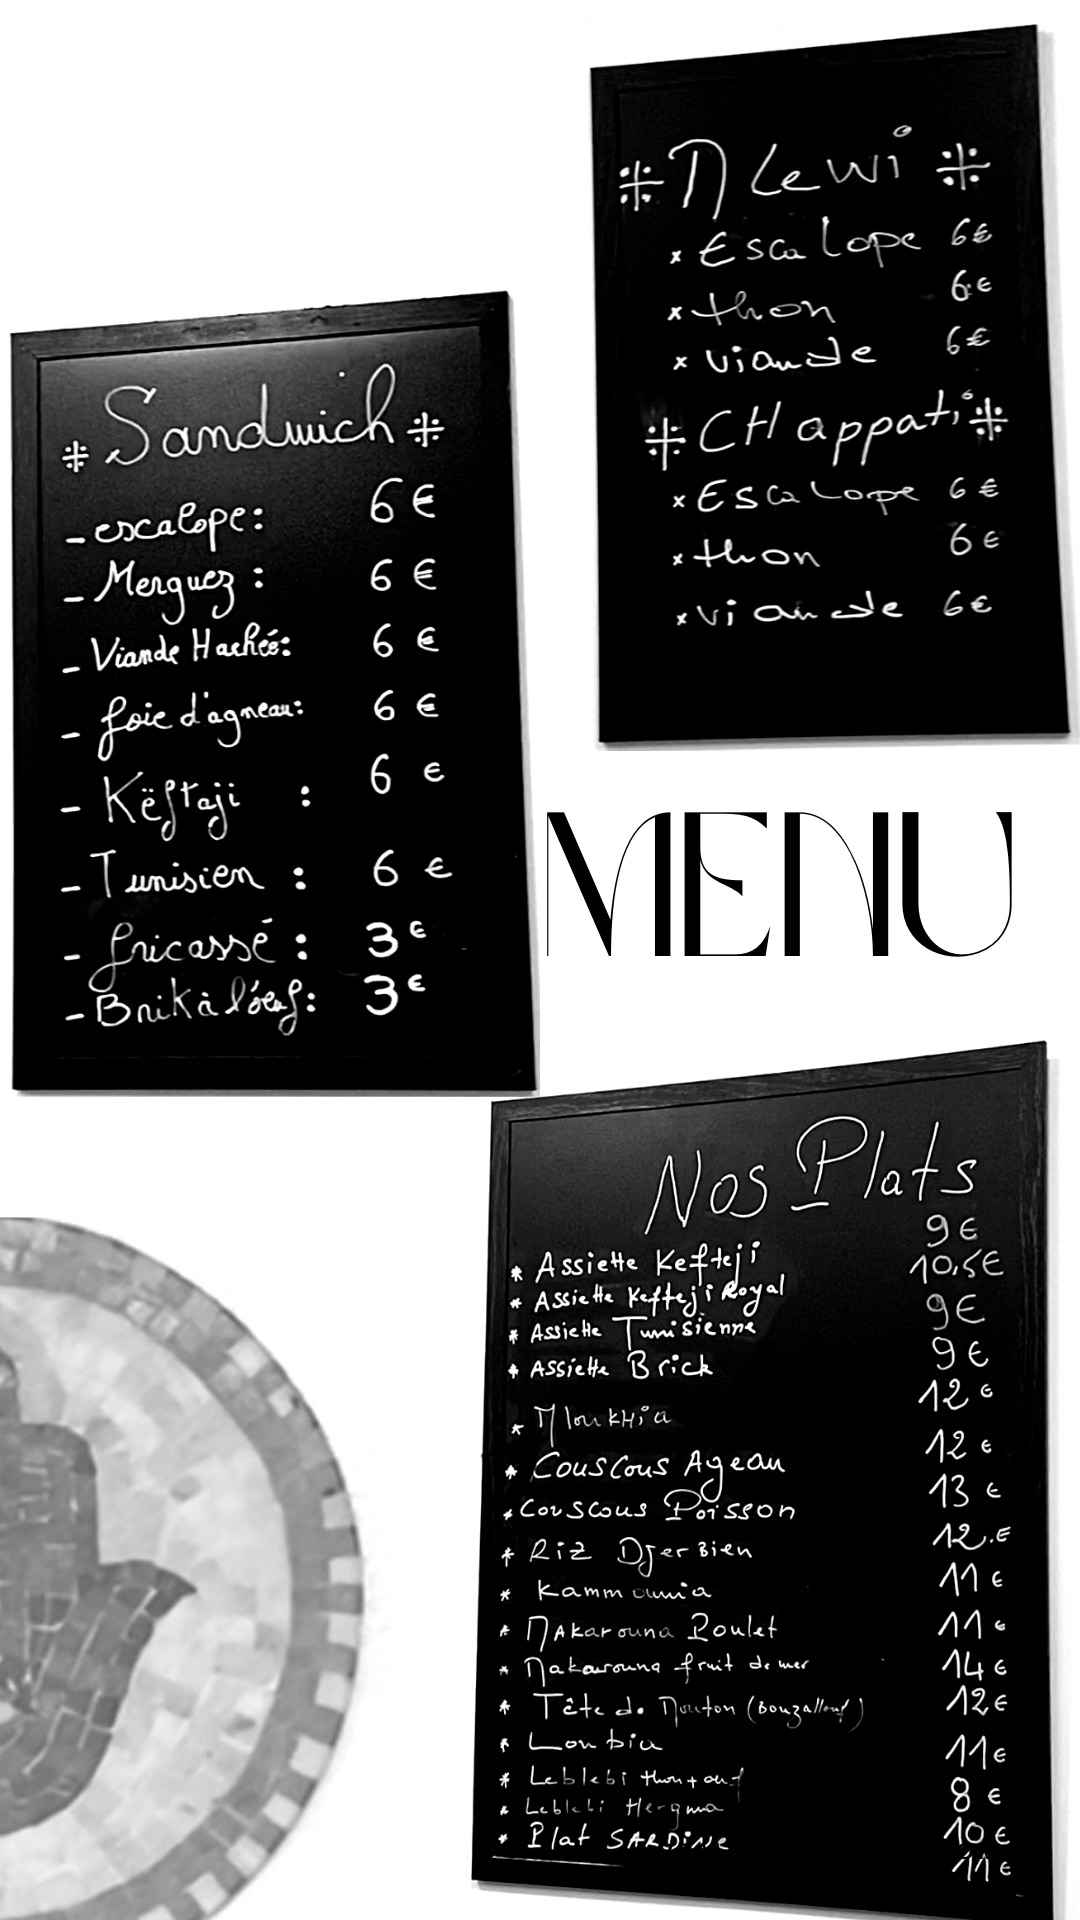 Mlewi
× Escalope 6€
× thon 6€
× viande 6€
CHappati
× Escalope 6€
× thon 6€
× viande 6€
Sandwich
- escalope: 6€
- Merguez : 6€
- Viande Hachée: 6€
- foie d'agneau: 6€
- Këftaji : 6€
- Tunisien : 6€
- fricassé : 3€
- Brik à l'œuf: 3€
MENU
Nos Plats
* Assiette Kefteji 9€
* Assiette Kefteji Royal 10,5€
* Assiette Tunisienne 9€
* Assiette Brick 9€
* MlouKHia 12€
* Couscous Ageau 12€
* Couscous Poisson 13€
* Riz Djerbien 12.€
* Kammounia 11€
* Makarouna Poulet 11€
* Makarouna fruit de mer 14€
* Tête de Mouton (Bouzallouf) 12€
* Loubia 11€
* Leblebi thon+œuf 8€
* Leblebi Hergma 10€
* Plat SARDiNe 11€